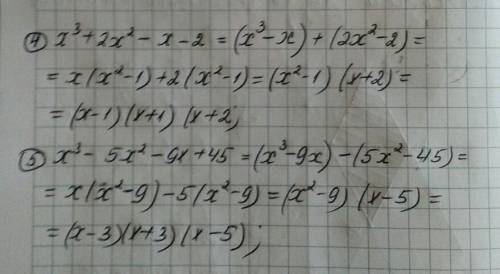 ④ x³+2x²-x-2=(x³-x)+(2x²-2)=
=x(x²-1)+2(x²-1)=(x²-1)(x+2)=
=(x-1)(x+1)(x+2;
⑤ x³-5x²-9x+45=(x³-9x)-(5x²-45)=
=x(x²-9)-5(x²-9)=(x²-9)(x-5)=
=(x-3)(x+3)(x-5);